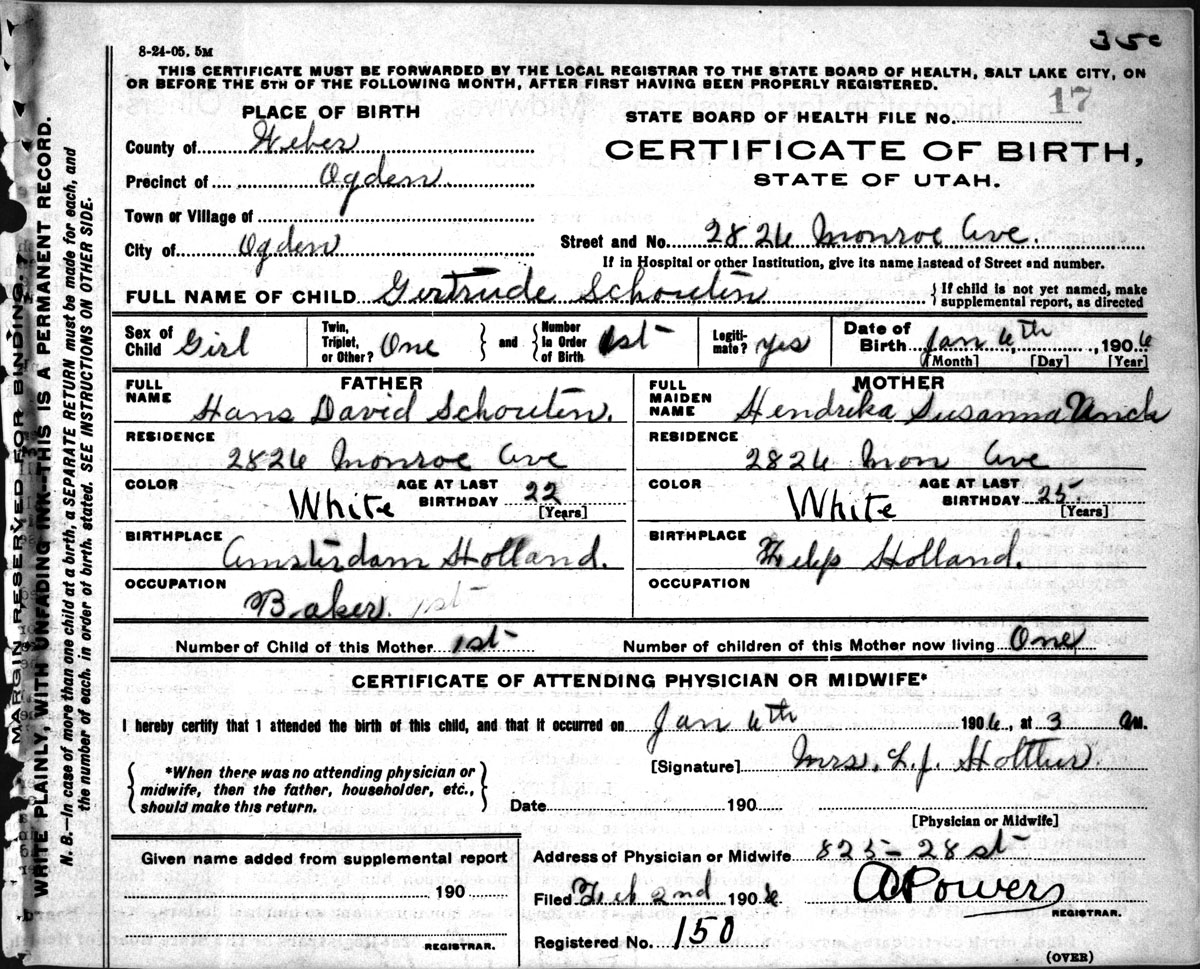 35c
8-24-05. 5M
THIS CERTIFICATE MUST BE FORWARDED BY THE LOCAL REGISTRAR TO THE STATE BOARD OF HEALTH, SALT LAKE CITY, ON
OR BEFORE THE 5TH OF THE FOLLOWING MONTH, AFTER FIRST HAVING BEEN PROPERLY REGISTERED.
PLACE OF BIRTH
STATE BOARD OF HEALTH FILE No. 17
County of Weber
CERTIFICATE OF BIRTH,
STATE OF UTAH.
Precinct of Ogden
Town or Village of
City of Ogden
Street and No. 2826 Monroe Ave.
If in Hospital or other Institution, give its name instead of Street and number.
FULL NAME OF CHILD Gertrude Schouten
{ If child is not yet named, make
supplemental report, as directed
Sex of Child Girl
Twin, Triplet, or Other? One } and { Number In Order of Birth 1st
Legiti-mate? yes
Date of Birth Jan 6th, 1906
[Month] [Day] [Year]
FATHER
FULL NAME Hans David Schouten.
RESIDENCE 2826 Monroe Ave
COLOR White AGE AT LAST BIRTHDAY 22 [Years]
BIRTHPLACE Amsterdam Holland.
OCCUPATION Baker. 1st
MOTHER
FULL MAIDEN NAME Hendrika Susanna
RESIDENCE 2826 Mon Ave
COLOR White AGE AT LAST BIRTHDAY 25 [Years]
BIRTHPLACE Velp Holland.
OCCUPATION
Number of Child of this Mother 1st
Number of children of this Mother now living One
CERTIFICATE OF ATTENDING PHYSICIAN OR MIDWIFE*
I hereby certify that I attended the birth of this child, and that it occurred on Jan 6th 1906, at 3 a M.
{ *When there was no attending physician or
midwife, then the father, householder, etc.,
should make this return. }
[Signature] Mrs. L. J.
Date 190
[Physician or Midwife]
Given name added from supplemental report
190
REGISTRAR.
Address of Physician or Midwife 825 - 28 st
Filed Feb 2nd 1906 A Powers
REGISTRAR.
Registered No. 150
(OVER)
MARGIN RESERVED FOR BINDING.
WRITE PLAINLY, WITH UNFADING INK--THIS IS A PERMANENT RECORD.
N. B.—In case of more than one child at a birth, a SEPARATE RETURN must be made for each, and
the number of each, in order of birth, stated. SEE INSTRUCTIONS ON OTHER SIDE.